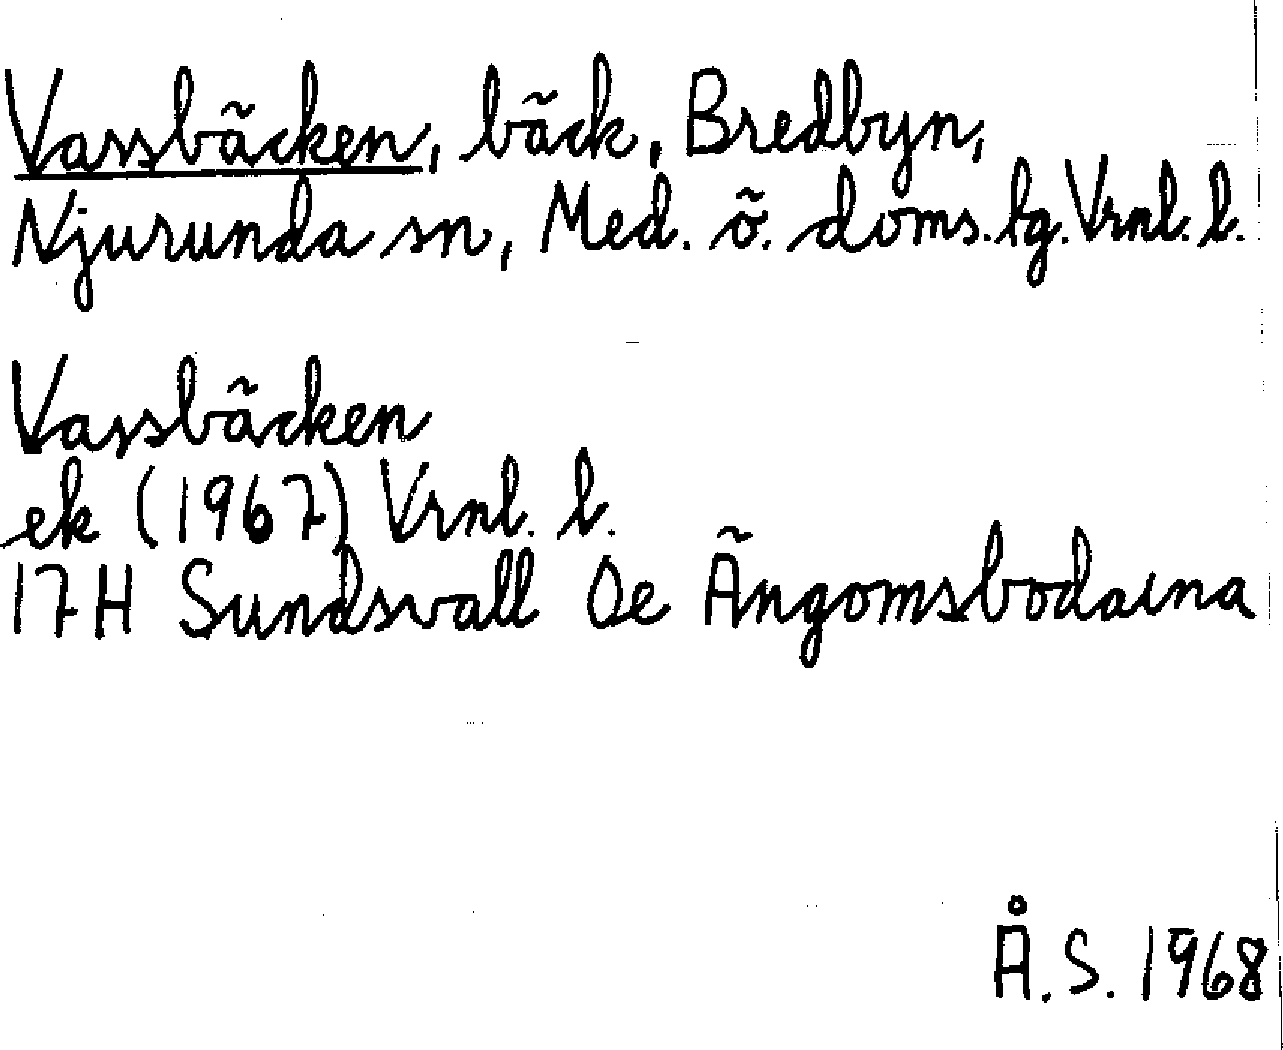 Vassbäcken, bäck, Bredbyn,
Njurunda sn, Med. ö. doms. lg. Vrnl. l.
Vassbäcken
ek (1967) Vrnl. l.
17H Sundsvall 0e Ängomsbodarna
Å.S. 1968